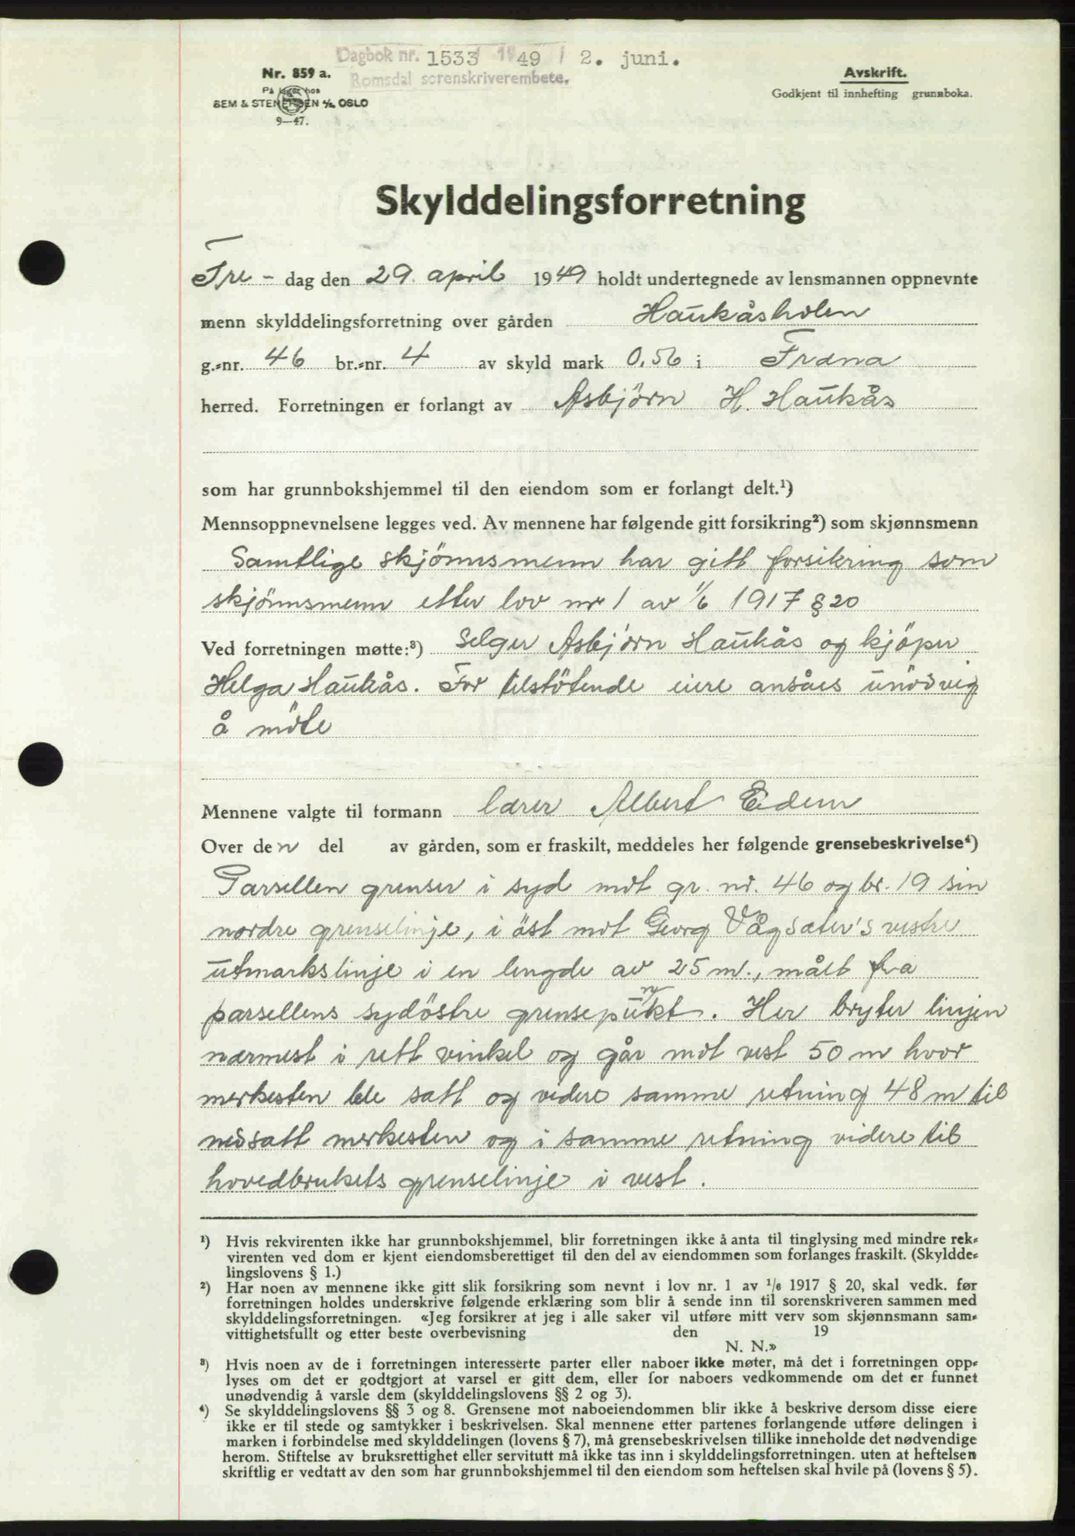 Dagbok nr. 1533 / 1949 / 2. juni.
Romsdal sorenskriverembete.
Nr. 859 a.
På lager hos
SEM & STENERSEN A/S OSLO
9—47.
Avskrift.
Godkjent til innhefting grunnboka.
Skylddelingsforretning
Fre - dag den 29. april 1949 holdt undertegnede av lensmannen oppnevnte
menn skylddelingsforretning over gården Haukåsholen
g.-nr. 46 br.-nr. 4 av skyld mark 0,56 i Fræna
herred. Forretningen er forlangt av Asbjörn H. Haukås
som har grunnbokshjemmel til den eiendom som er forlangt delt.¹)
Mennsoppnevnelsene legges ved. Av mennene har følgende gitt forsikring²) som skjønnsmenn
Samtlige skjönnsmenn har gitt forsikring som
skjönnsmenn etter lov nr 1 av 1/6 1917 § 20
Ved forretningen møtte:³) Selger Asbjörn Haukås og kjöper
Helga Haukås. For tilstötende eiere ansåes unödvig
å möte
Mennene valgte til formann lærer Albert Eidem
Over den del av gården, som er fraskilt, meddeles her følgende grensebeskrivelse⁴)
Parsellen grenser i syd mot gr. nr. 46 og br. 19 sin
nordre grenselinje, i öst mot Georg Vågsæter's vestre
utmarkslinje i en lengde av 25 m., målt fra
parsellens sydöstre grensepunkt. Her bryter linjen
nærmest i rett vinkel og går mot vest 50 m hvor
merkesten ble satt og videre samme retning 48 m til
nedsatt merkesten og i samme retning videre til
hovedbrukets grenselinje i vest.
¹) Hvis rekvirenten ikke har grunnbokshjemmel, blir forretningen ikke å anta til tinglysing med mindre rek-
virenten ved dom er kjent eiendomsberettiget til den del av eiendommen som forlanges fraskilt. (Skyldde-
lingslovens § 1.)
²) Har noen av mennene ikke gitt slik forsikring som nevnt i lov nr. 1 av 1/6 1917 § 20, skal vedk. før
forretningen holdes underskrive følgende erklæring som blir å sende inn til sorenskriveren sammen med
skylddelingsforretningen. «Jeg forsikrer at jeg i alle saker vil utføre mitt verv som skjønnsmann sam-
vittighetsfullt og etter beste overbevisning den 19
N. N.»
³) Hvis noen av de i forretningen interesserte parter eller naboer ikke møter, må det i forretningen opp-
lyses om det er godtgjort at varsel er gitt dem, eller for naboers vedkommende om det er funnet
unødvendig å varsle dem (skylddelingslovens §§ 2 og 3).
⁴) Se skylddelingslovens §§ 3 og 8. Grensene mot naboeiendommen blir ikke å beskrive dersom disse eiere
ikke er til stede og samtykker i beskrivelsen. Skal mennene etter partenes forlangende utføre delingen i
marken i forbindelse med skylddelingen (lovens § 7), må grensebeskrivelsen tillike inneholde det nødvendige
herom. Stiftelse av bruksrettighet eller servitutt må ikke tas inn i skylddelingsforretningen. uten at heftelsen
skriftlig er vedtatt av den som har grunnbokshjemmel til den eiendom som heftelsen skal hvile på (lovens § 5).